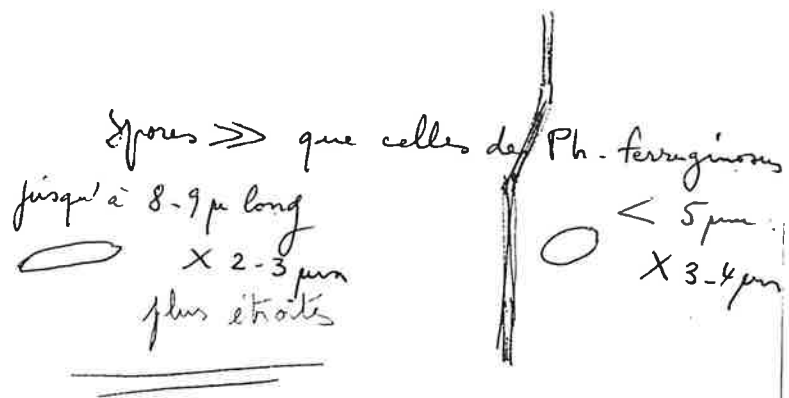 Spores >> que celles de Ph. ferruginosus
jusqu'à 8-9 µ long
X 2-3 µm
plus étroites
< 5 µm.
X 3-4 µm